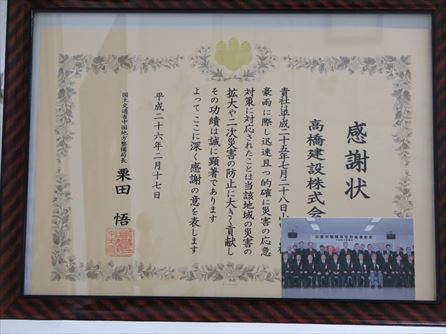 感謝状
高橋建設株式会
貴社は平成二十五年七月二十八日山
豪雨に際し迅速且つ的確に災害の応急
対策に対応されたことは当該地域の災害の
拡大や二次災害の防止に大きく貢献し
その功績は誠に顕著であります
よって ここに深く感謝の意を表します
平成二十六年二月十七日
国土交通省中国地方整備局長 栗田 悟